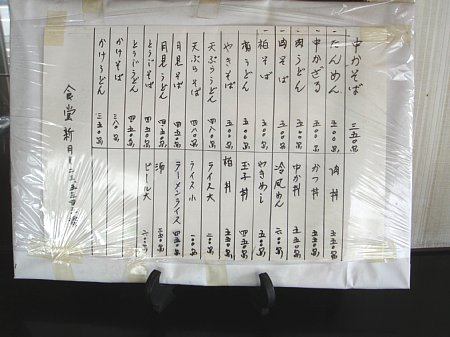 中かそば 三五〇円
一たんめん 五〇〇円
一中かざる 五〇〇円
一肉うどん 五〇〇円
一肉そば 五〇〇円
一柏そば 五〇〇円
うどん 五〇〇円
やきそば 五〇〇円
天ぷらうどん 四八〇円
天ぷらそば 四八〇円
月見うどん 四五〇円
月見そば 四五〇円
とうじそば 四五〇円
とうじうどん 四五〇円
かけそば 三八〇円
かけうどん 三五〇円
肉丼 五五〇円
かつ丼 五五〇円
中か丼 五五〇円
冷風めん 六〇〇円
やきめし 五〇〇円
玉子丼 四五〇円
柏丼 五五〇円
ライス大 二〇〇円
ライス小 一〇〇円
ラーメンライス 四五〇円
酒 三五〇円
ビール大 六〇〇円
食堂新月